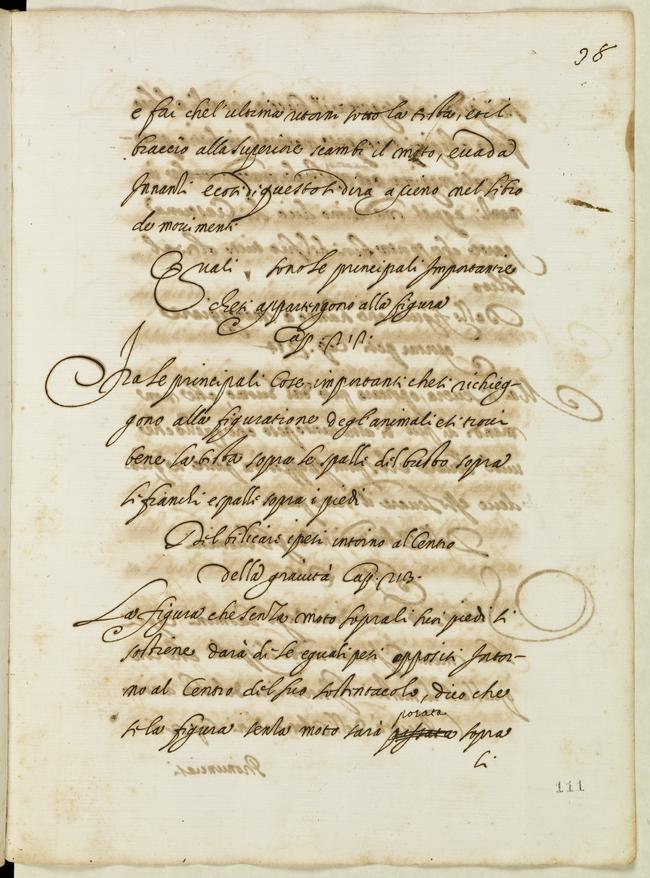 98
e fai che l'ultima ritorni sotto la testa, et il
braccio alla superiore scambi il moto, e vada
Innanti e cosi di questo ti dirà a pieno nel libro
de movimenti
Quali sono le principali Importantie
che ti appartengono alla figura
Cap.
Tra le principali Cose importanti che ti richieg-
gono alla figuratione degl'animali et situar
bene la testa sopra le spalle il busto sopra
li fianchi e spalle sopra i piedi
Del bilicare i pesi intorno al Centro
della gravità Cap. 213.
La figura che senza moto sopra li suoi piedi si
sostiene darà di se eguali pesi oppositi Intor-
no al Centro del suo sostentacolo, dico che
se la figura senza moto sarà posata sopra
li
111